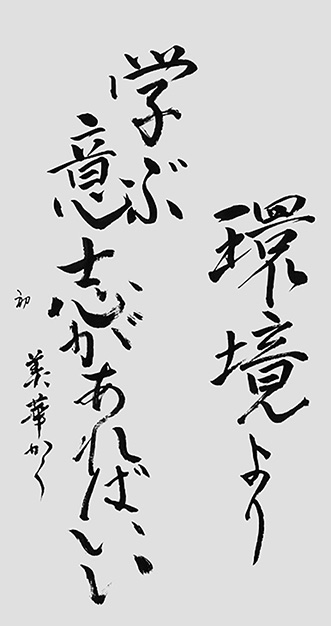 環境より
学ぶ
意志があればいい
初
美華かく